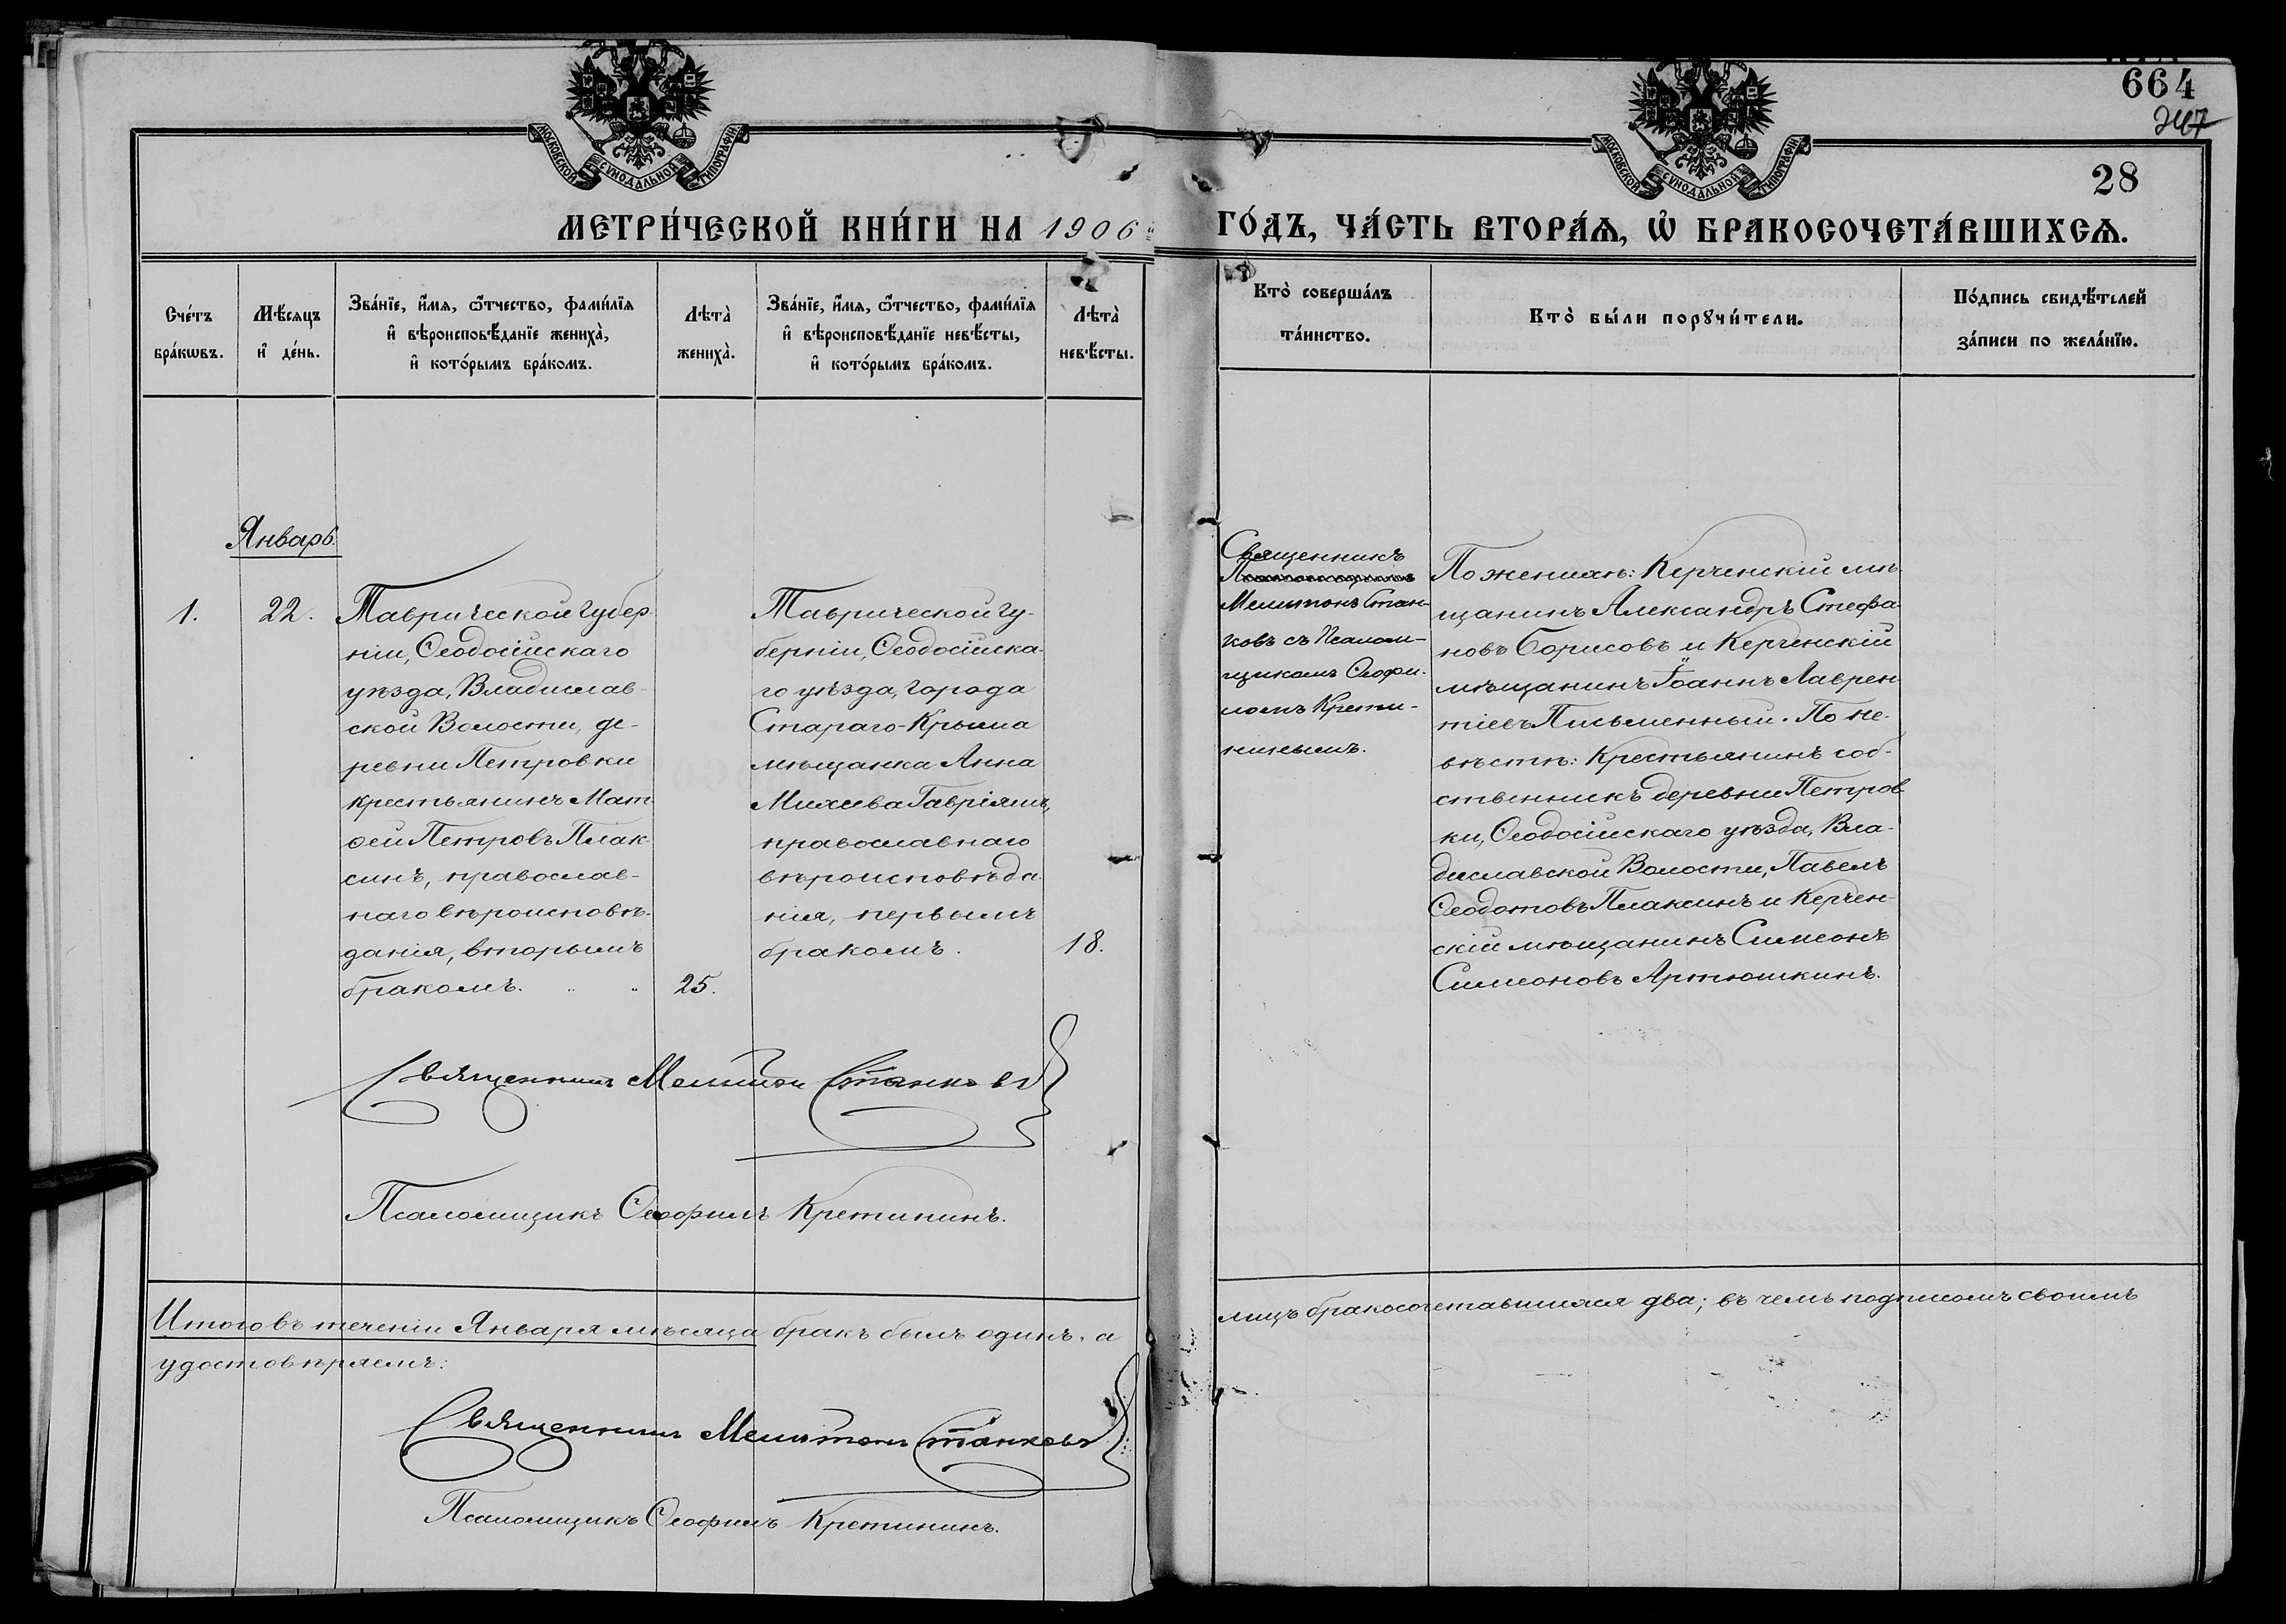 664
247
28
МОСКОВСКОЙ СѴНОДАЛЬНОЙ ТИПОГРАФІИ
МОСКОВСКОЙ СѴНОДАЛЬНОЙ ТИПОГРАФІИ
МЕТРИ́ЧЕСКОЙ КНИ́ГИ НА 1906й
ГО́ДЪ, ЧА́СТЬ ВТОРА́Ѧ, Ѡ҆ БРАКОСОЧЕТА́ВШИХСѦ.
Сче́тъ
бра́кѡвъ.
Мѣ́сѧцъ
и҆ де́нь.
Зва́нїе, и҆́мѧ, ѻ҆́тчество, фами́лїѧ
и҆ вѣроисповѣ́данїе жениха̀,
и҆ кото́рымъ бра́комъ.
Лѣта̀
жениха̀.
Зва́нїе, и҆́мѧ, ѻ҆́тчество, фами́лїѧ
и҆ вѣроисповѣ́данїе невѣ́сты,
и҆ кото́рымъ бра́комъ.
Лѣта̀
невѣ́сты.
Кто̀ соверша́лъ
та́инство.
Кто̀ бы́ли порꙋчи́тели.
По́дпись свидѣ́телей
за́писи по жела́нїю.
Январь.
1.
22.
Таврической губер
ніи, Ѳеодосійскаго
уѣзда, Владислав-
ской Волости, де-
ревни Петровки
крестьянинъ Мат
ѳей Петровъ Плак-
синъ, православ-
наго вѣроисповѣ-
данія, вторымъ
бракомъ.
25.
Таврической гу-
берніи, Ѳеодосійска-
го уѣзда, города
Стараго-Крыма
мѣщанка Анна
Михеева Гавріяшъ,
православнаго
вѣроисповѣда
нія, первымъ
бракомъ.
18.
Священникъ
Мелитонъ Стан-
ковъ съ Псалом-
щикомъ Ѳеофи-
ломъ Крети-
нинымъ.
По женихѣ: Керченскій мѣ-
щанинъ Александръ Стефа-
новъ Борисовъ и Керченскій
мѣщанинъ Іоаннъ Лаврен-
тіевъ Письменный. По не-
вѣстѣ: Крестьянинъ соб-
ственникъ деревни Петров-
ки, Ѳеодосійскаго уѣзда, Вла-
диславской Волости, Павелъ
Ѳеодотовъ Плаксинъ и Керчен-
скій мѣщанинъ Симеонъ
Симеоновъ Артюшкинъ.
Священникъ Мелитон Станковъ
Псаломщикъ Ѳеофилъ Кретининъ.
Итого въ теченіи Января мѣсяца бракъ былъ одинъ, а
лицъ бракосочетавшихся два; въ чемъ подписомъ своимъ
удостовѣряемъ:
Священникъ Мелитонъ Станковъ
Псаломщикъ Ѳеофилъ Кретининъ.